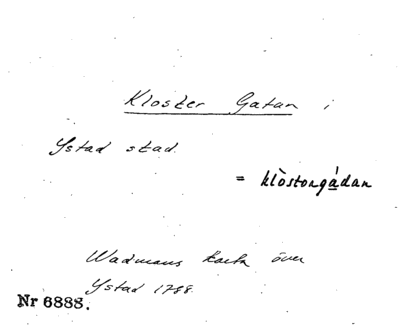 Kloster Gatan i
Ystad stad.
= klòstongádan
Wadmans karta över
Ystad 1788.
Nr 6888.